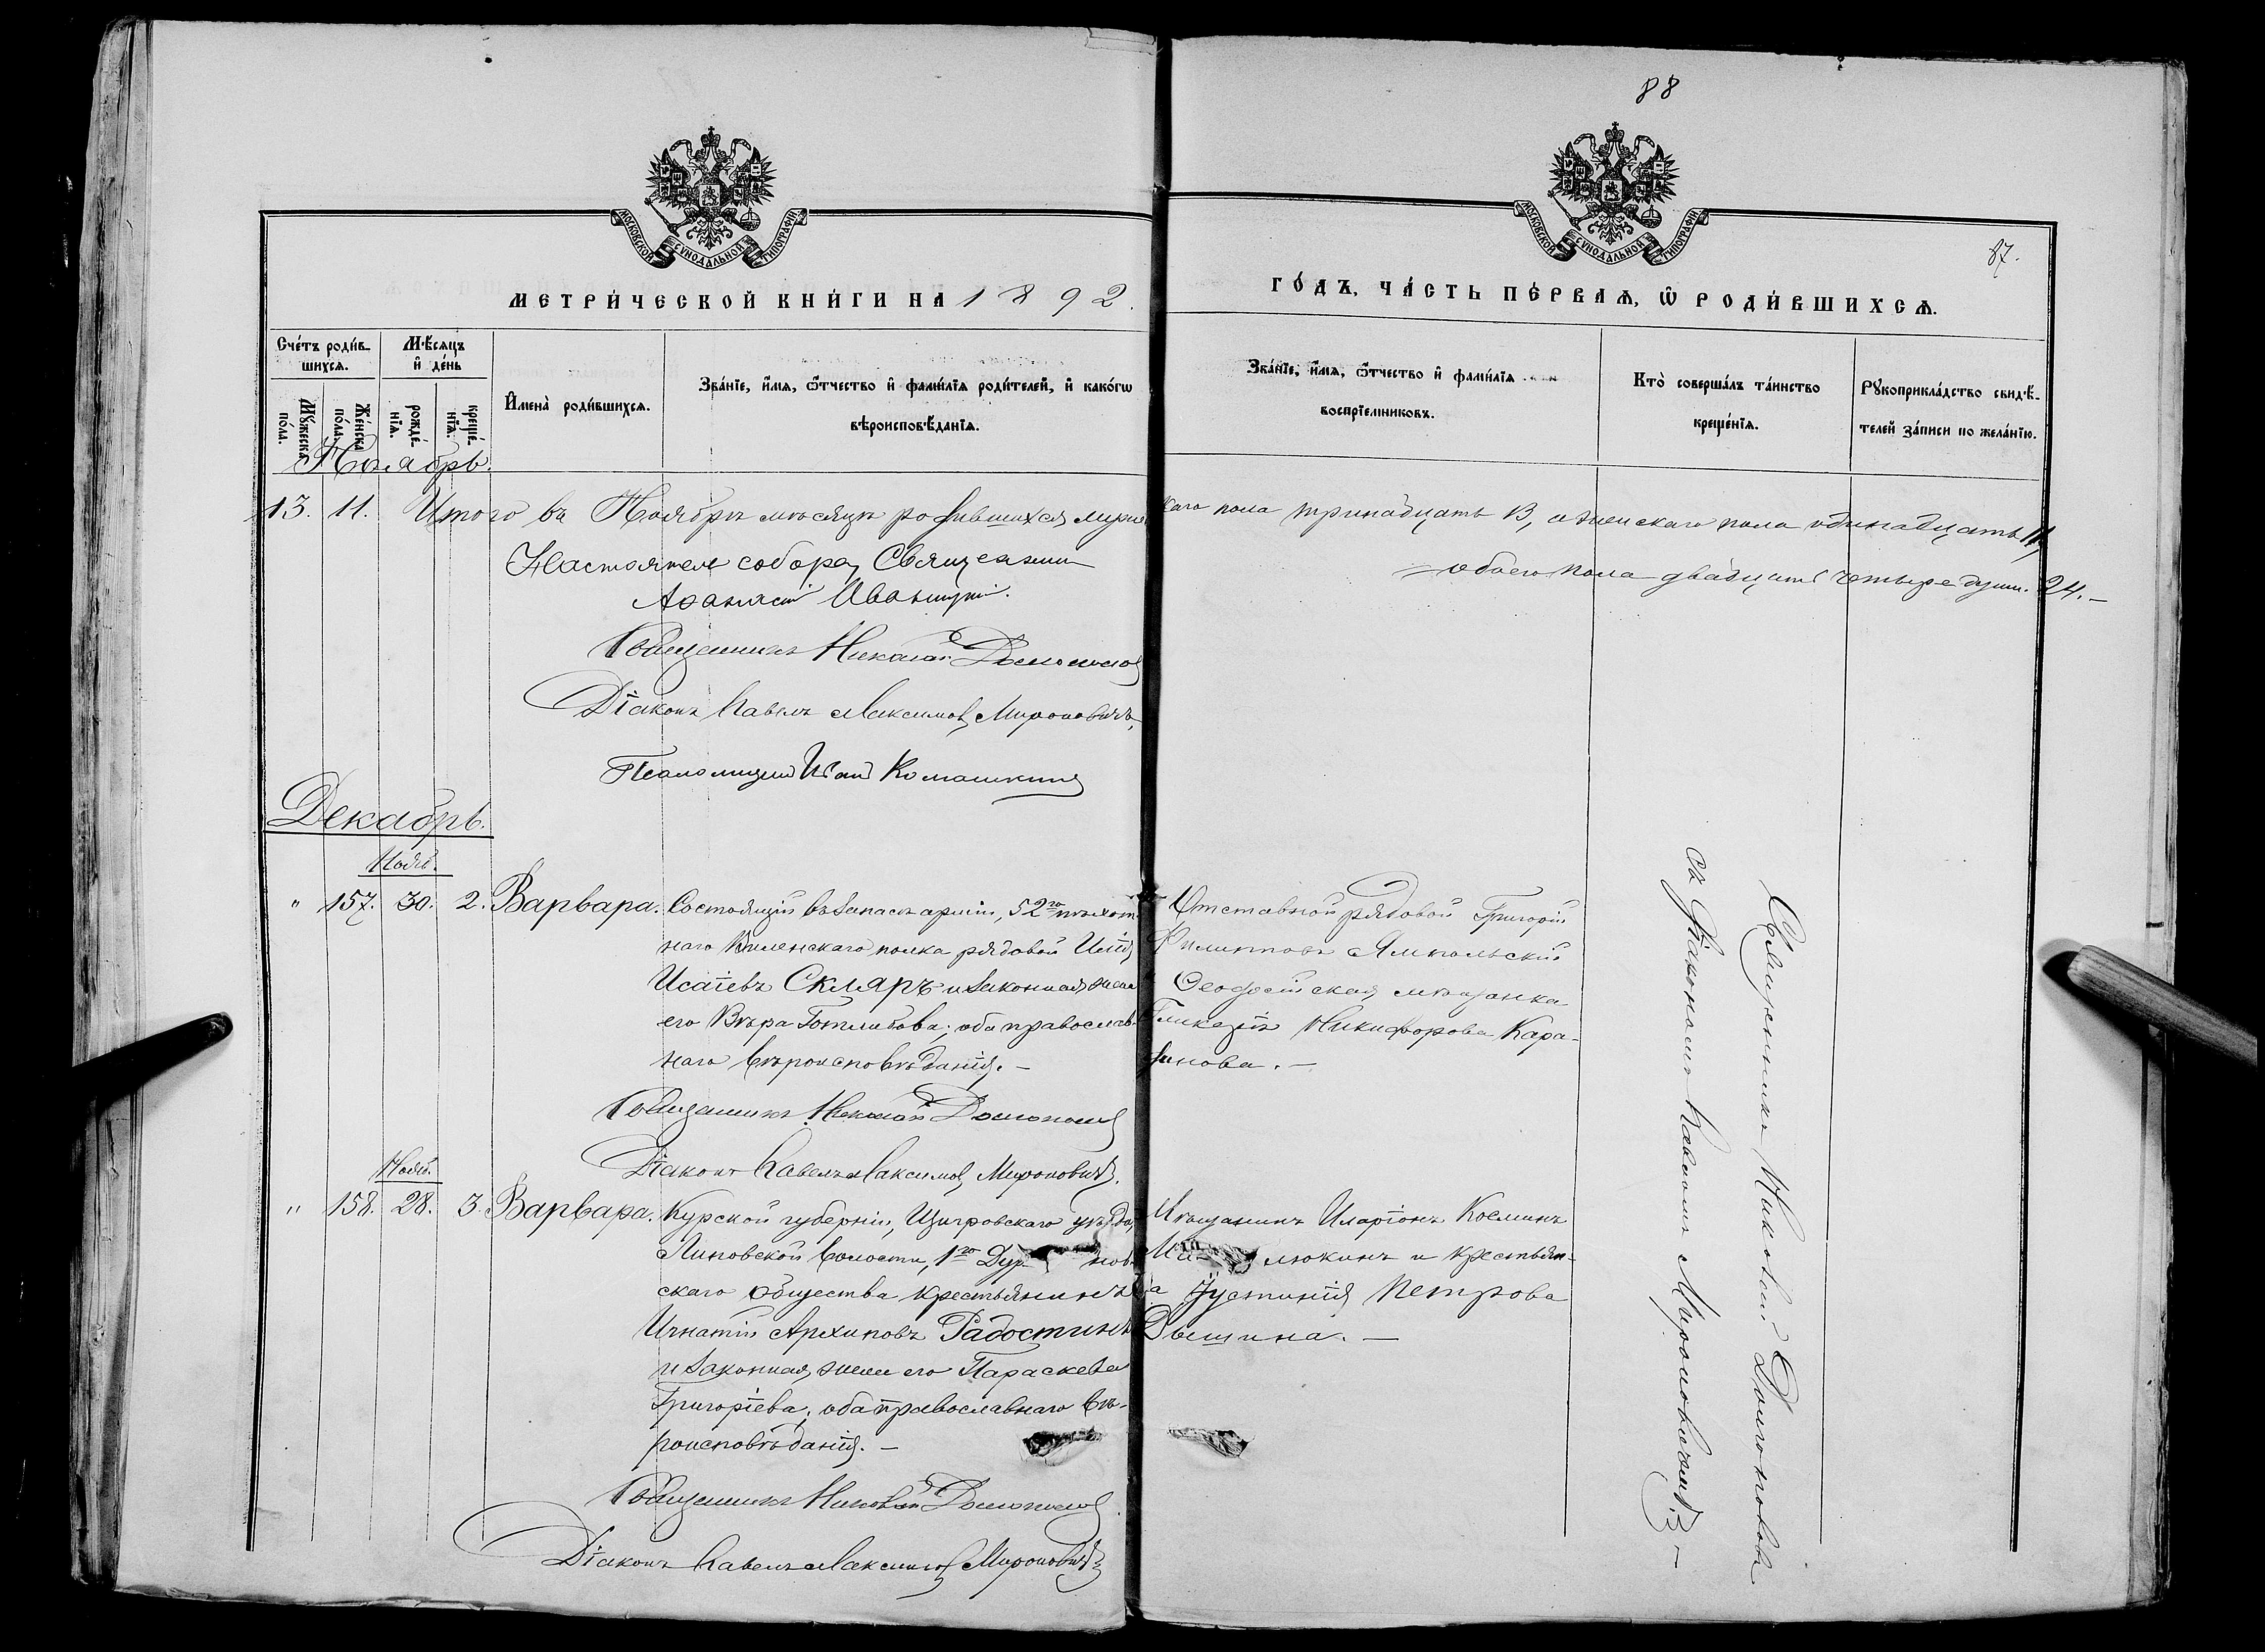 88
МОСКОВСКОЙ СѴНОДАЛЬНОЙ ТИПОГРАФІИ
МОСКОВСКОЙ СѴНОДАЛЬНОЙ ТИПОГРАФІИ
87.
МЕТРИ́ЧЕСКОЙ КНИ́ГИ НА 1892.
ГО́ДЪ, ЧА́СТЬ ПЕ́РВАѦ, Ѽ РОДИ́ВШИХСѦ.
Сче́тъ роди́в-
шихсѧ.
Мѣ́сѧцъ
и҆ де́нь
Мꙋ́жеска
по́ла.
Же́нска
по́ла.
рожде́-
нїѧ.
креще́-
нїѧ.
И҆мена̀ роди́вшихсѧ.
Зва́нїе, и҆́мѧ, ѻ҆́тчество и҆ фами́лїѧ роди́телей, и҆ како́гѡ
вѣроисповѣ́данїѧ.
Зва́нїе, и҆́мѧ, ѻ҆́тчество и҆ фами́лїѧ
воспрїе́мниковъ.
Кто̀ соверша́лъ та́инство
креще́нїѧ.
Рꙋкоприкла́дство свидѣ́-
телей за́писи по жела́нїю.
Ноябрь.
13. 11. Итого въ Ноябрѣ мѣсяцѣ родившихся мужескаго пола тринадцать 13, а женскаго пола одинадцать 11,
обоего пола двадцать четыре души. 24.—
Настоятель собора, Священникъ
Аѳанасій
Священникъ Николай
Діаконъ Павелъ Максимов Мироновичъ
Псаломщикъ Иван Комашкинъ
Декабрь.
Нояб.
" 157. 30. 2. Варвара. Состоящій въ запасѣ арміи, 52го пѣхот-
наго Виленскаго полка рядовой Илія
Исаіевъ Скляръ и законная жена
его Вѣра Готлибова; оба православ-
наго вѣроисповѣданія.—
Отставной рядовой Григорій
Филиповъ Ямпольскій
Ѳеодосійская мѣщанка
Гликерія Никифорова Кара-
Священникъ Николай
съ Діакономъ Павломъ Мироновичемъ.—
Священникъ Николай
Діаконъ Павелъ Максимов Мироновичъ.
Нояб.
" 158. 28. 3. Варвара. Курской губерніи, Щигровскаго уѣзда,
Липовской волости, 1го
скаго общества крестьянинъ
Игнатій Архиповъ Радостинъ
и законная жена его Параскева
Григоріева; оба православнаго вѣ-
роисповѣданія.—
Мѣщанинъ Иларіонъ Косминъ
и крестьян-
ка Іустинія Петрова
Священникъ Николай
Діаконъ Павелъ Максимов Мироновичъ